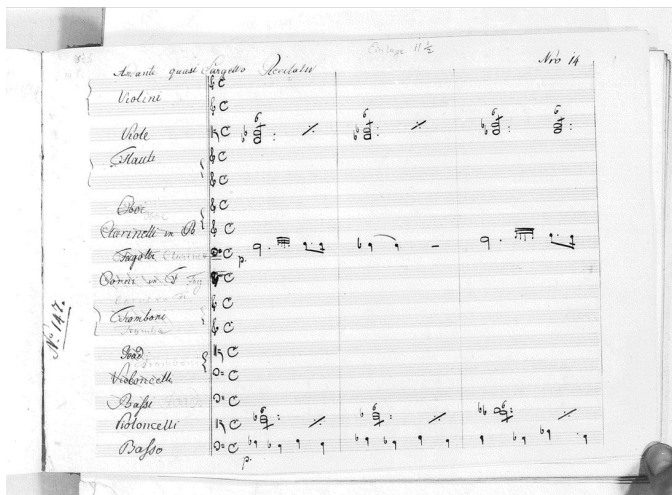 Einlage 11 ½
Nro 14
Andante quasi Larghetto Recitativ
Violini
Viole
Flauti
Oboe
Clarinetti in B
Fagotti
Corni in F
Tromboni
Violoncelli
Bassi
Violoncelli
Basso
6 6 6 6
p.
6 6 6
p.
No 147.